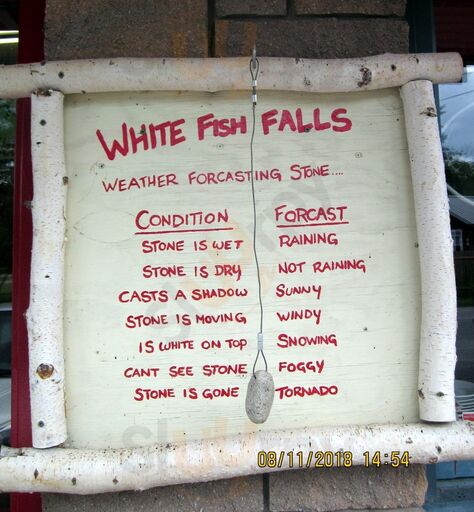 WHITE FISH FALLS
WEATHER FORCASTING STONE....
CONDITION FORCAST
STONE IS WET RAINING
STONE IS DRY NOT RAINING
CASTS A SHADOW SUNNY
STONE IS MOVING WINDY
IS WHITE ON TOP SNOWING
CANT SEE STONE FOGGY
STONE IS GONE TORNADO
08/11/2018 14:54